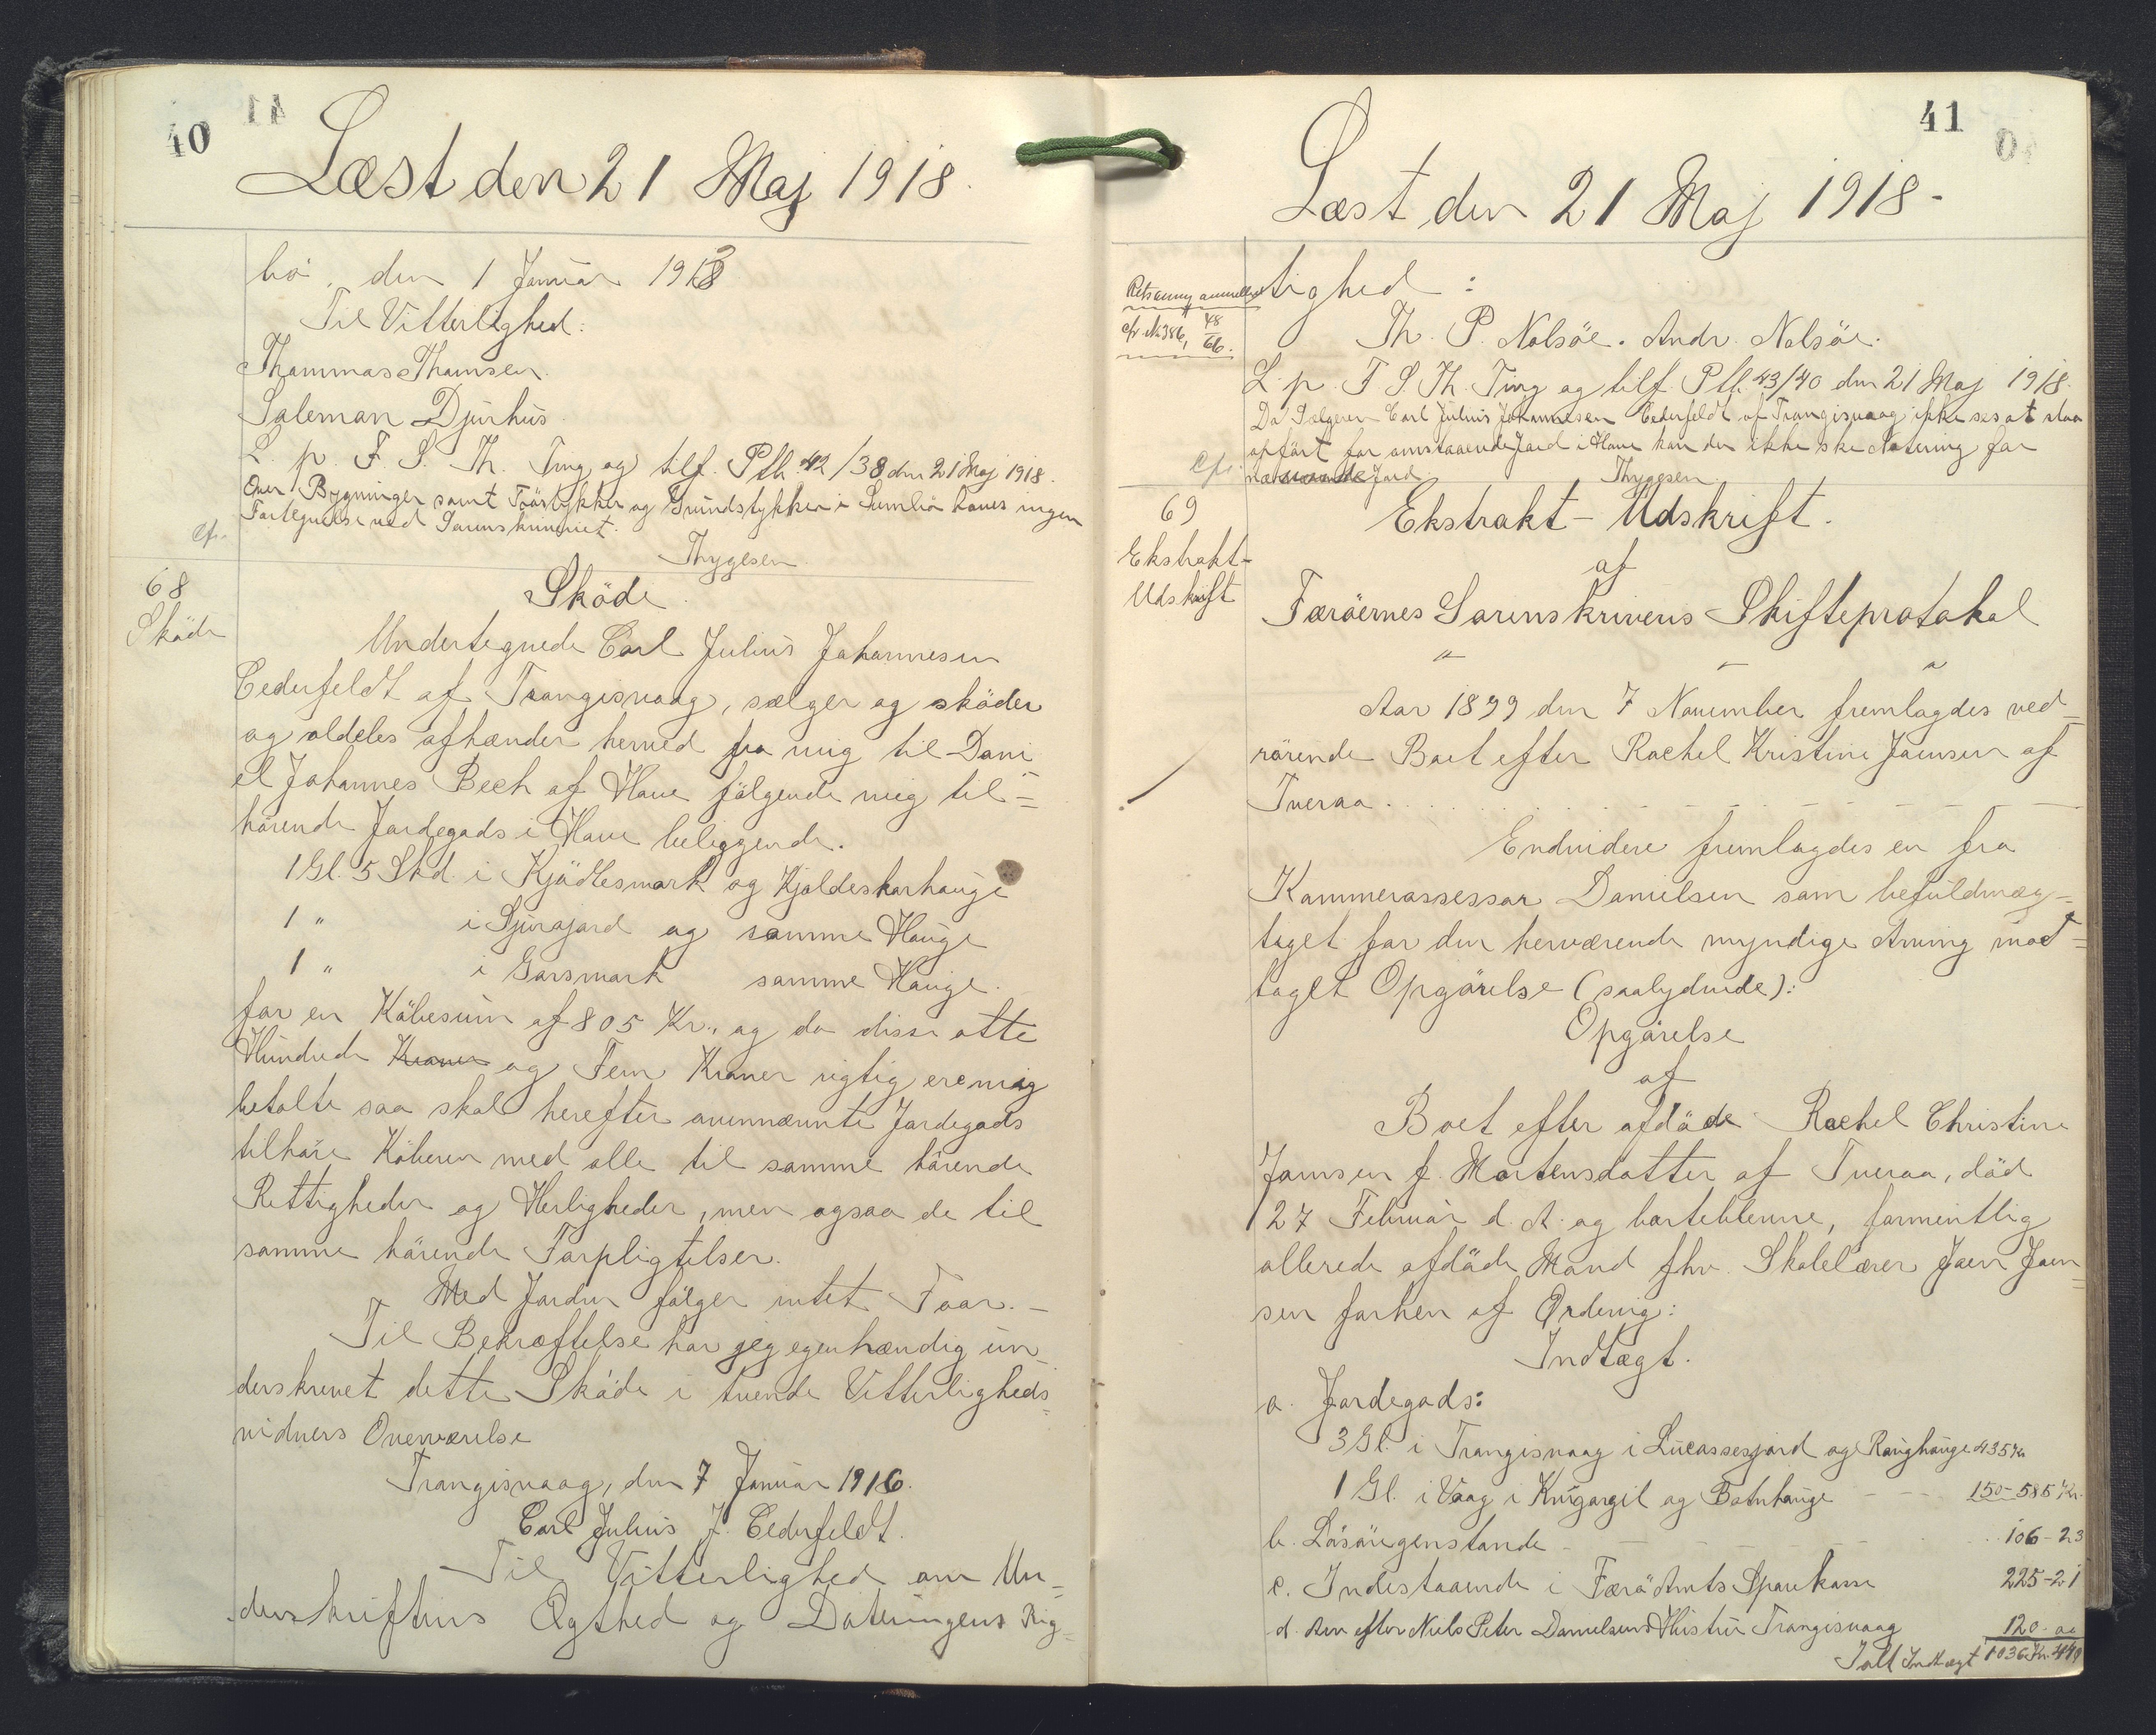 40
Læst den 21 Maj 1918.
bö, den 1 Januar 1918
Til Vitterlighed:
Thammas Thamsen.
Saleman Djurhus.
L. p. F. S. Th. Ting og tilf. Ptb. 42/38 den 21 Maj 1918.
Over Bygninger samt Törstykker og Grundstykker i Sumbö haves ingen
Fortegnelse ved Sorenskriveriet.
Cfr.
Thygesen
68
Sköde
Sköde.
Undertegnede Carl Julius Johannesen
Cederfeldt af Trangisvaag, sælger og sköder
og aldeles afhænder herved fra mig til Dani
el Johannes Bech af Hove følgende mig til=
hörende Jordegods i Hove beliggende.
1 Gl. 5 Skd. i Kjädlesmark og Kjoldeskarhauge
1 " i Sjurajord og samme Hauge
1 " i Garsmark samme Hauge.
for en Köbesum af 805 Kr., og da disse otte
Hundrede Kroner og Fem Kroner rigtig ere mig
betalte saa skal herefter ovennævnte Jordegods
tilhöre Köberen med alle til samme hörende
Rettigheder og Herligheder, men ogsaa de til
samme hörende Forpligtelser.
Med Jorden fölger intet Faar. -
Til Bekræftelse har jeg egenhændig un
derskrevet dette Sköde i tvende Vitterligheds=
vidners Overværelse
Trangisvaag, den 7 Januar 1916.
Carl Julius J. Cederfeldt.
Til Vitterlighed om Un=
derskriftens Ægthed og Dateringens Rig=
41
Læst den 21 Maj 1918-
Retsanm anmelles
cfr. No 386, 48/66.
tighed :
Th. P. Nolsöe. Andr. Nolsöe.
L. p. F S. Th. Ting og tilf. Ptb. 43/40 den 21 Maj 1918.
Da Sælgeren Carl Julius Johannesen Cederfeldt af Trangisvaag ikke ses at staa
opfört for omstaaende Jord i Hove kan der ikke ske Notering for
nærværende Jord.
Thygesen
Cfr.
69
Ekstrakt-
Udskrift
Ekstrakt-Udskrift.
af
Færöernes Sorenskriveris Skifteprotokol
Aar 1899 den 7 November fremlagdes ved=
rörende Boet efter Rachel Kristine Joensen af
Tveraa.
Endvidere fremlagdes en fra
Kammerassessor Danielsen som befuldmæg=
tiget for den herværende myndige Arving mod=
taget Opgörelse (saalydende):
Opgörelse
af
Boet efter afdöde Rachel Christine
Joensen f. Mortensdatter af Tveraa, död
27 Februar d. A. og borteblevne, formentlig
allerede afdöde Mand fhv. Skolelærer Joen Joen=
sen forhen af Ordevig:
Indtægt.
a. Jordegods:
3 Gl. i Trangisvaag i Lucassesjord og Raughauge 435 Kr
1 Gl. i Vaag i Krugargil og Botnhauge 150 - 585 Kr.
b. Lösöregenstande 106-23
c. Indestaaende i Færö Amts Sparekasse 225-21
d. Arv efter Niels Peter Danielsens Hustru Trangisvaag 120-00
Ialt Indtægt 1036 Kr. 44